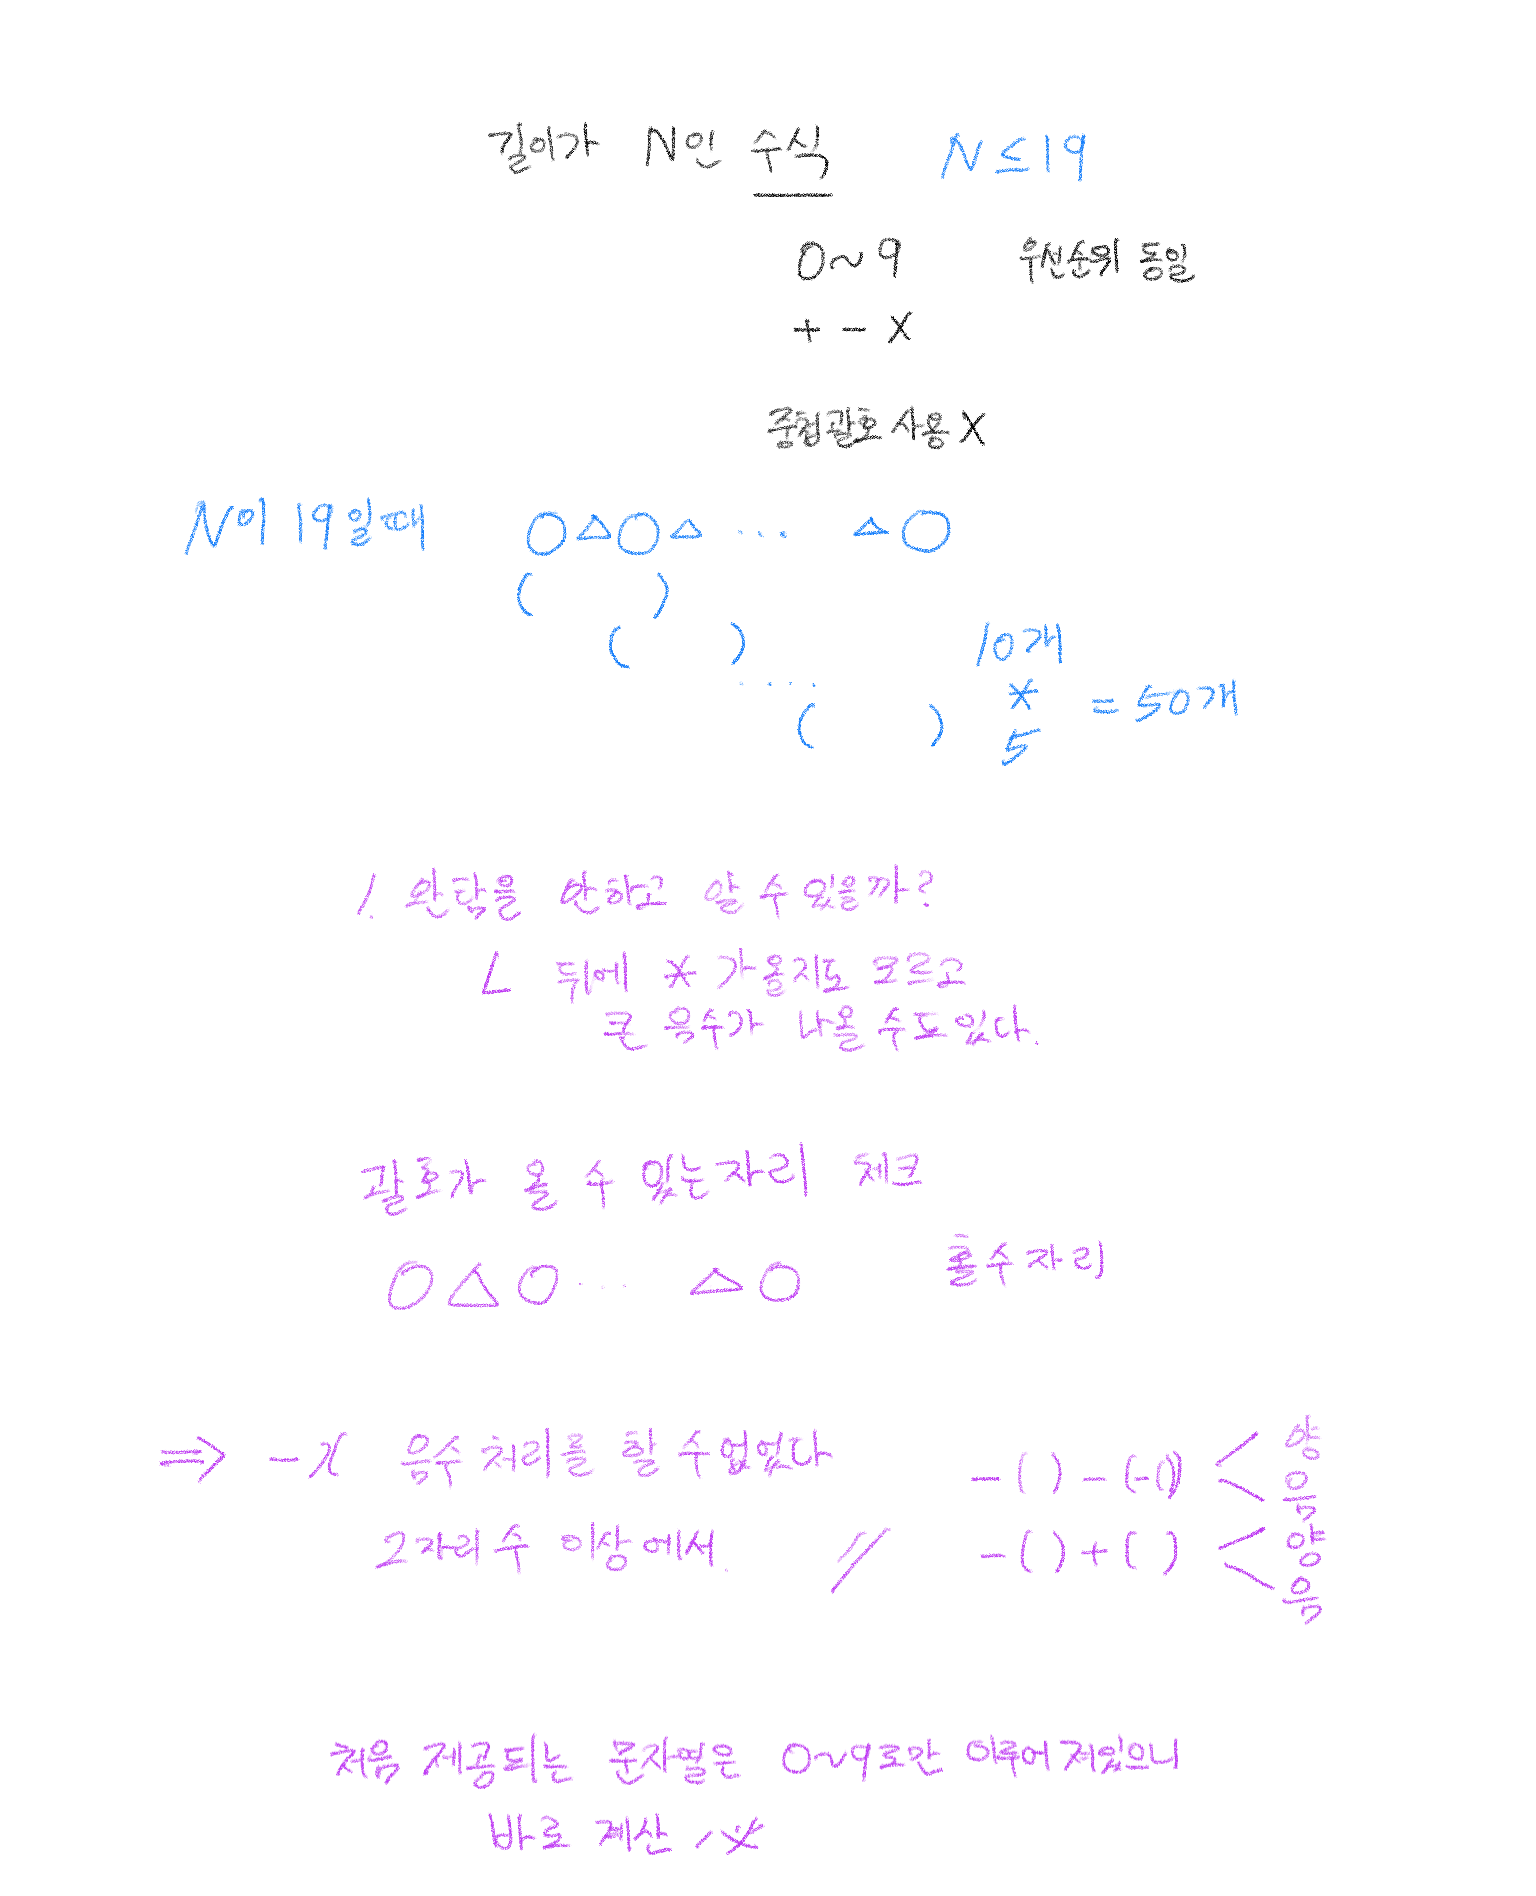 길이가 N인 수식 N ≤ 19
0~9 우선순위 동일
+ - X
중첩괄호 사용 X
N이 19일때 ○△○△ ... △○
( )
( ) 10개
.... * = 50개
( ) 5
1. 완탐을 안하고 알 수 있을까?
ㄴ 뒤에 * 가올지도 모르고
큰 음수가 나올 수도 있다.
괄호가 올 수 있는자리 체크
○△○ ... △○ 홀수자리
⇒ -x 음수 처리를 할 수 없었다 -( ) - (-()) < 양 음
2자리 수 이상에서. // -( ) + ( ) < 양 음
처음 제공되는 문자열은 0~9로만 이루어 져있으니
바로 계산